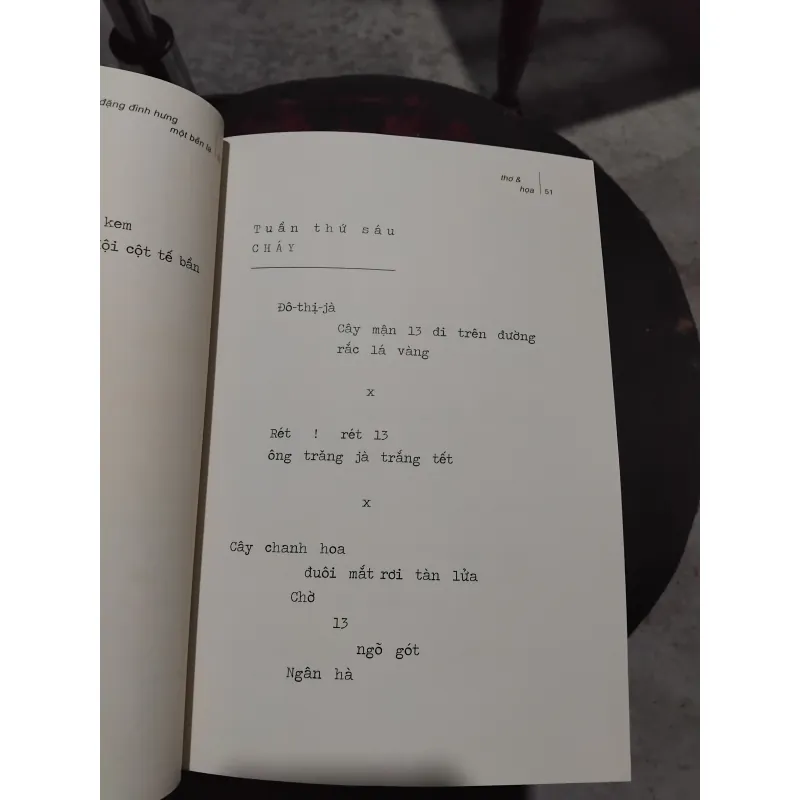 đặng đình hưng
một bến lạ
kem
ội cột tế bần
thơ &
họa 51
Tuần thứ sáu
CHÁY
Đô-thị-jà
Cây mận 13 đi trên đường
rắc lá vàng
x
Rét ! rét 13
ông trăng jà trắng tết
x
Cây chanh hoa
đuôi mắt rơi tàn lửa
Chờ
13
ngõ gót
Ngân hà